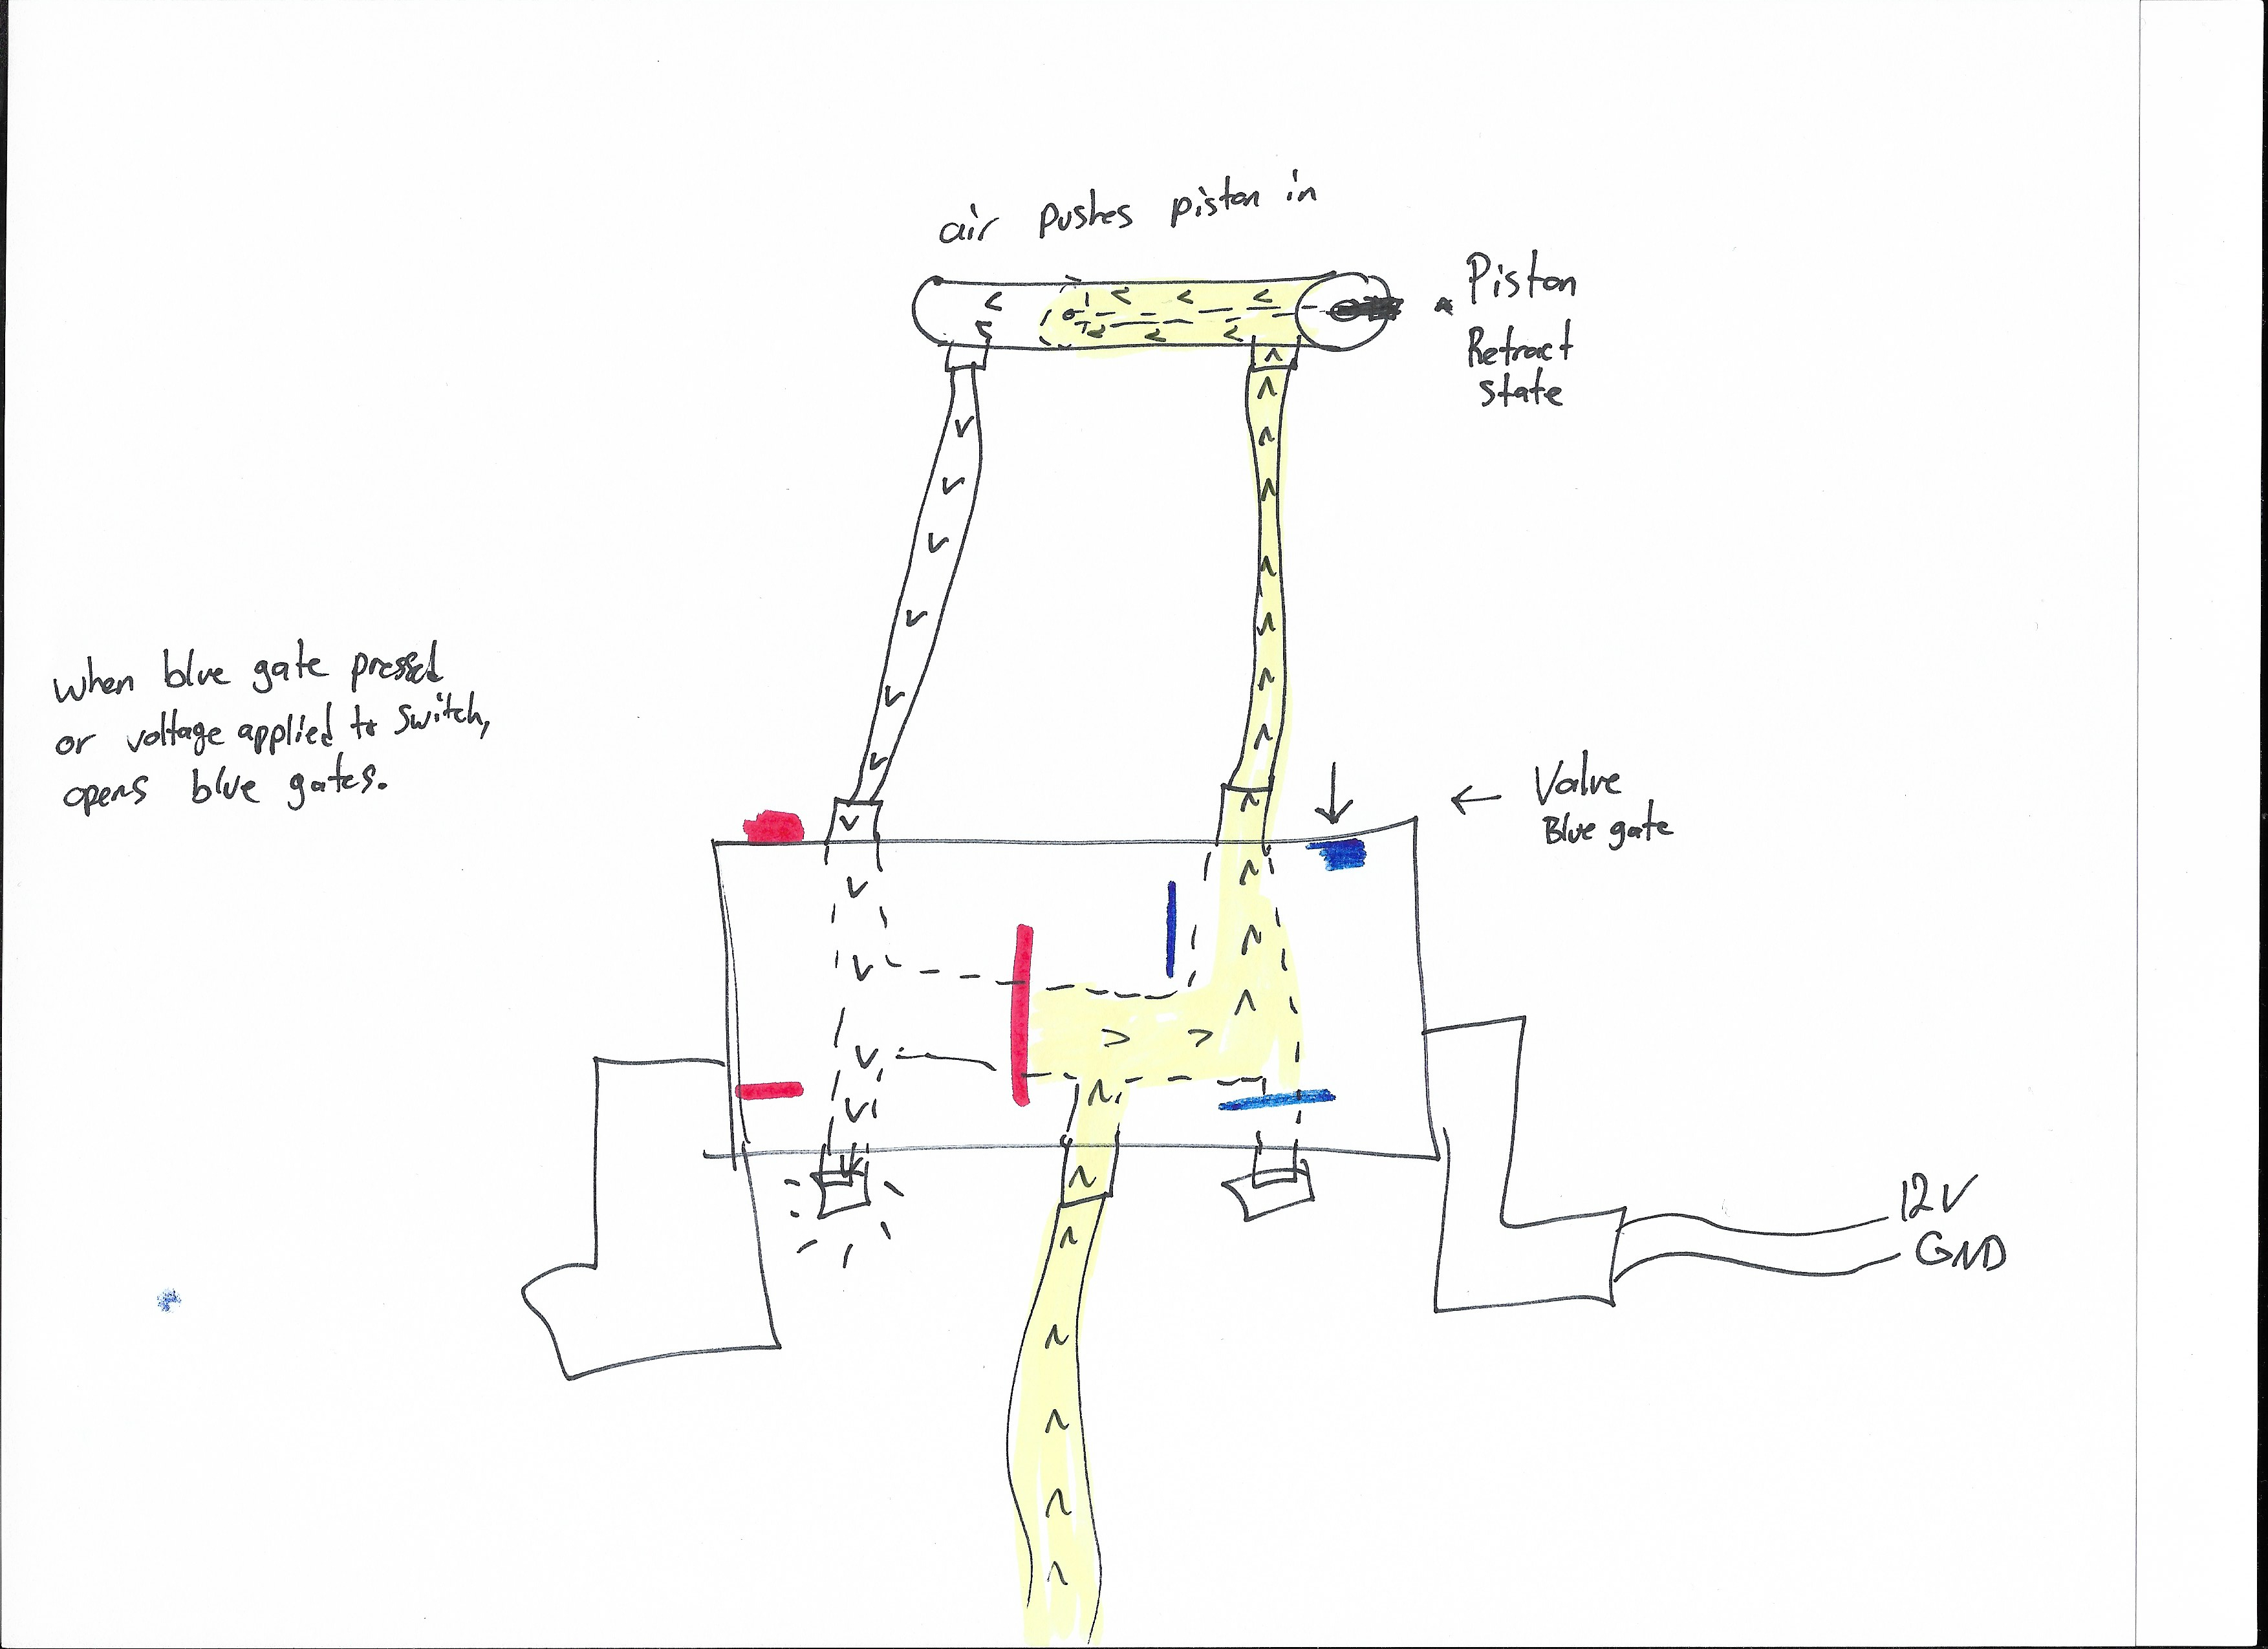 air pushes piston in
Piston
Retract
state
when blue gate pressed
or voltage applied to switch,
opens blue gates.
Valve
Blue gate
12V
GND